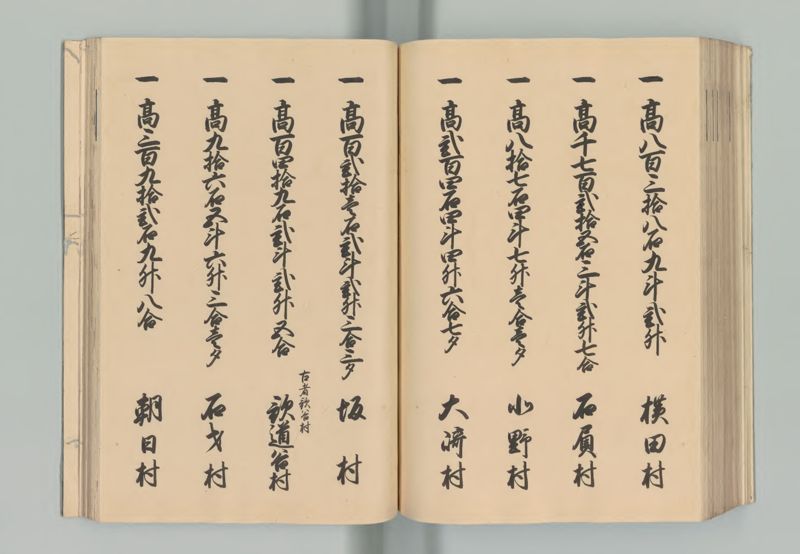 一 高八百三拾八石九斗弐升 横田村
一 高千七百弐拾五石三斗弐升七合 石原村
一 高八拾七石四斗七升壱合壱夕 小野村
一 高弐百四石四斗四升六合七夕 大崎村
一 高百弐拾壱石弐斗弐升三合三夕 坂村
古者歌谷村
一 高百四拾九石弐斗弐升五合 歌道谷村
一 高九拾六石五斗六升三合壱夕 石才村
一 高三百九拾弐石九升八合 朝日村